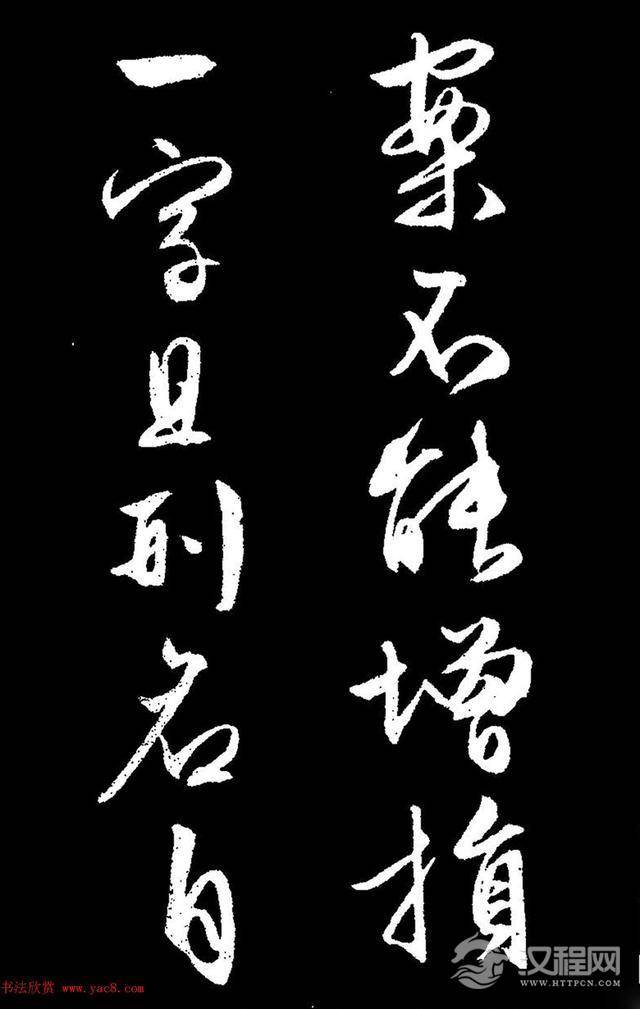 案不能增損
一字且刑名自
书法欣赏 www.yac8.com
汉程网
WWW.HTTPCN.COM